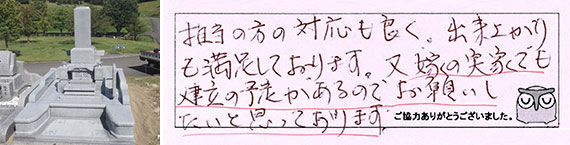 担当の方の対応も良く、出来上がり
も満足しております。又嫁の実家でも
建立の予定があるので お願いし
たいと思っております。
ご協力ありがとうございました。